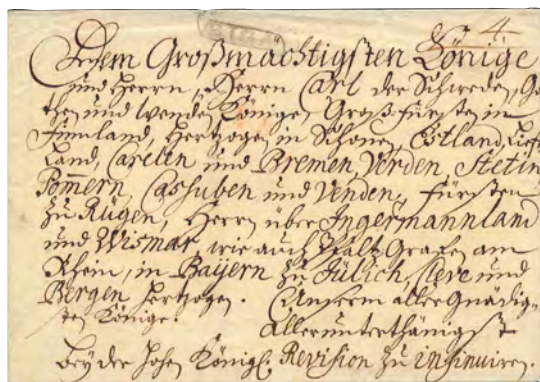 RIGA
4.
Dem Großmächtigsten Könige
und Herrn, Herrn Carl der Schweden, Go
then und Wenden Könige, Groß-Fürsten in
Finnland, Hertzogen in Schonen, Estland, Lief
Land, Carelen und Bremen, Verden, Stetin
Pom̃ern, Cassuben und Venden, Fürsten
zu Rügen, Herrn über Ingermannland
und Wismar, wie auch Pfaltz Grafen am
Rhein, in Bayern zu Jülich, Cleve und
Bergen Hertzogen. Unserm aller Gnädig-
sten Könige. Allerunterthänigst
bey der Hohen Königl. Revision zu insinuiren.